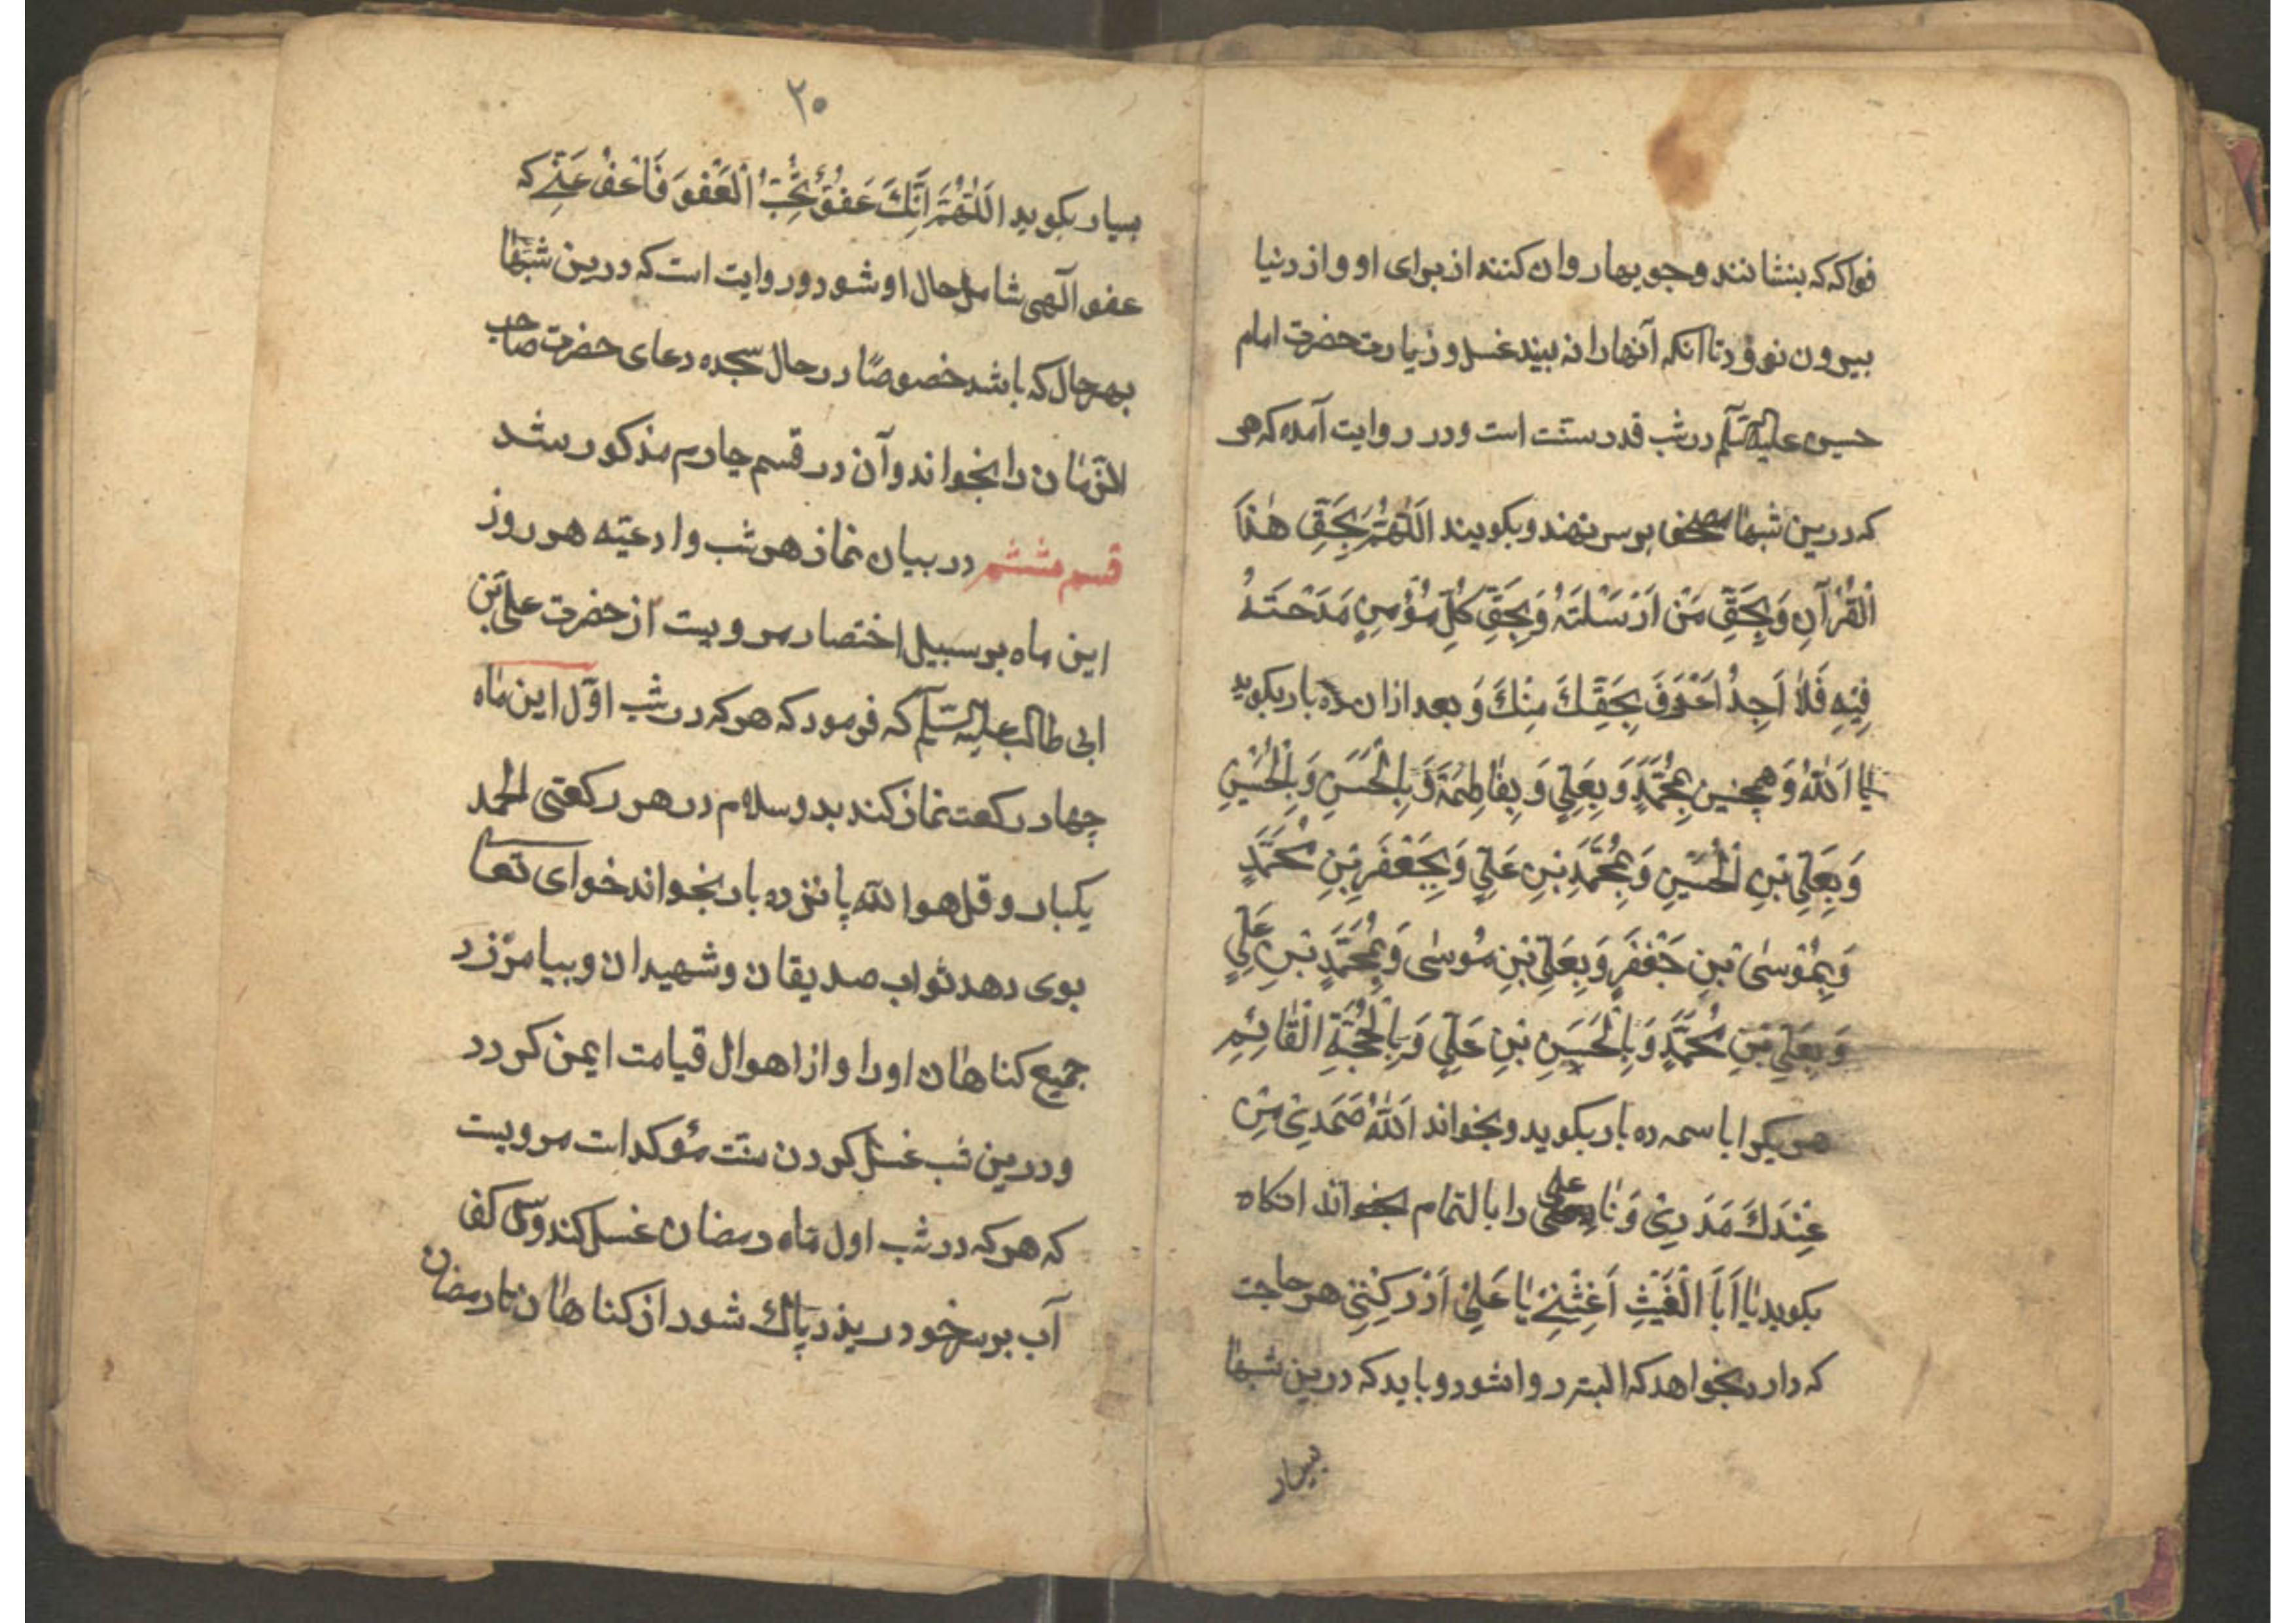 فواکه که بنشانند و جویها روان کنند از برای او و از دنیا
بیرون نرود تا انکه آنها را نه بیند غسل و زیارت حضرت امام
حسین علیه السّلم در شب قدر سنّت است و در روایت آمده که هر
که درین شبها مصحف بر سر نهند و بکویند اَللّٰهُمَّ بِحَقِّ هٰذَا
اْلقُرْآنِ وَبِحَقِّ مَنْ اَرْسَلْتَهُ وَبِحَقِّ كُلِّ مُؤْمِنٍ مَدَحْتَهُ
فِيْهِ فَلاٰ اَحِدُ اَعْرَفَ بِحَقِّكَ مِنْكَ وَ بعد ازان ده بار بکوید
یا اَللّٰهُ وَ همچنین بِمُحَمَّدٍ وَ بِعَلِيٍّ وَ بِفٰاطِمَةَ وَ بِالْحَسَنِ وَ بِالْحُسَيْنِ
وَ بِعَلِيِّ بْنِ الْحُسَيْنِ وَ بِمُحَمَّدِ بْنِ عَلِيٍّ وَ بِجَعْفَرِ بْنِ مُحَمَّدٍ
وَ بِمُوْسىٰ بْنِ جَعْفَرٍ وَ بِعَلِيِّ بْنِ مُوْسىٰ وَ بِمُحَمَّدِ بْنِ عَلِيٍّ
وَ بِعَلِيِّ بْنِ مُحَمَّدٍ وَ بِالْحَسَنِ بْنِ عَلِيٍّ وَ بِالْحُجَّةِ الْقٰائِمِ
هر یکرا باسمه ده بار بکوید و بخواند اَللّٰهُ صَمَدِيْ مِنْ
عِنْدَكَ مَدَدِيْ وَ نٰادِ علی را بالتمام بخواند انکاه
بکوید یٰا اَبَا الْغَيْثِ اَغِثْنِيْ یٰا عَلِيُّ اَدْرِكْنِيْ هر حاجت
که دارد بخواهد که البتّه روا شود و باید که درین شبها
بسیار
۲۰
بسیار بکوید اَللّٰهُمَّ اِنَّكَ عَفُوٌّ تُحِبُّ الْعَفْوَ فَاعْفُ عَنِّيْ که
عفو آلهی شامل حال او شود و روایت است که درین شبها
بهر حال که باشد خصوصًا در حال سجده دعای حضرت صاحب
الزّمان را بخواند و آن در قسم چارم مذکور شد
قسم ششم در بیان نماز هر شب و ادعیّه هر روز
این ماه بر سبیل اختصار مرویست از حضرت علی بْن
ابی طالب علیه السّلم که فرمود که هر که در شب اوّل این ماه
چهار رکعت نماز کند بدو سلام در هر رکعتی الحمد
یکبار و قل هو الله پانزده بار بخواند خدای تعا
بوی دهد ثواب صدیقان و شهیدان و بیامرزد
جمیع کناهان او را و از اهوال قیامت ایمن کردد
و درین شب غسل کردن سنّت مؤکد است مرویست
که هر که در شب اول ماه رمضان غسل کند و سی کف
آب بر سر خود ریزد پاك شود از کناهان تا رمضان